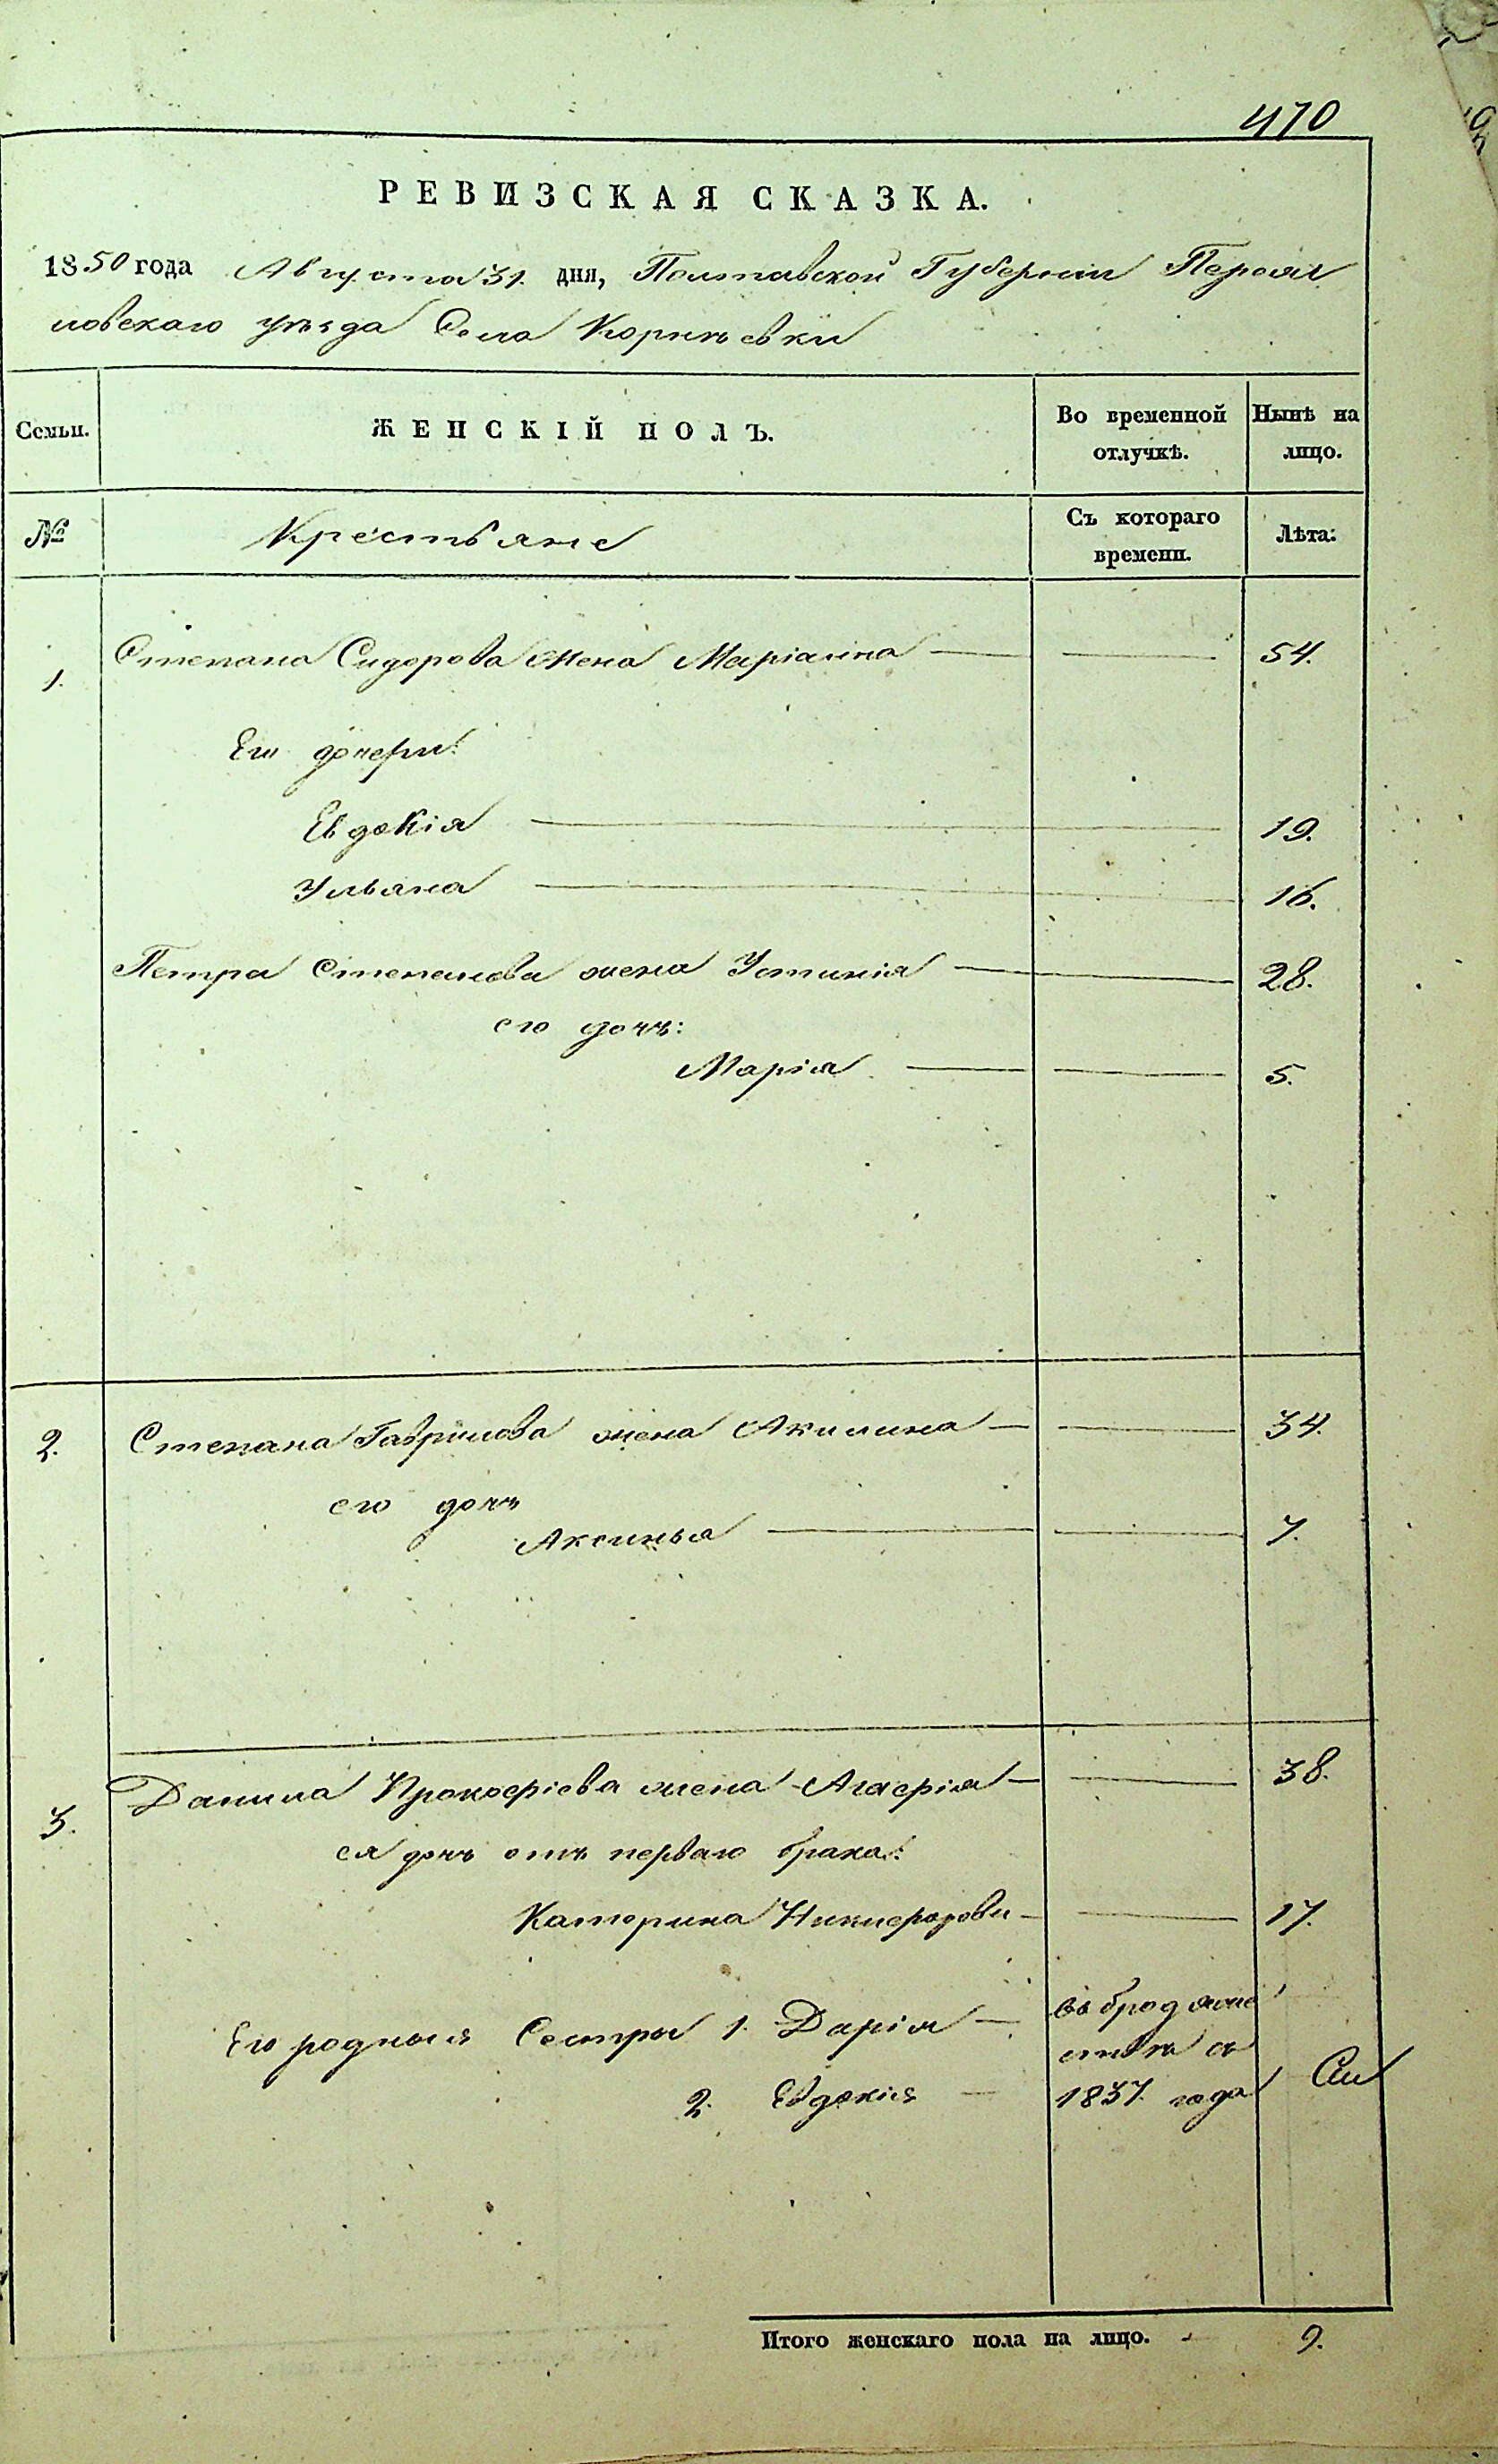 470
РЕВИЗСКАЯ СКАЗКА.
1850 года Августа 31. дня, Полтавской Губернии Переяс
ловскаго уѣзда Села Корнѣевки
Семьи.
ЖЕНСКІЙ ПОЛЪ.
Во временной
отлучкѣ.
Нынѣ на
лицо.
№
Крестьяне
Съ котораго
времени.
Лѣта:
1.
Степана Сидорова жена Маріанна — — 54.
Его дочери:
Евдокія — 19.
Ульяна — 16.
Петра Степанова жена Устинія — 28.
его дочь:
Марія — — 5.
2. Степана Гаврилова жена Акилина — — 34.
его дочь
Аксинья — — 7.
3. Данила Прокофіева жена Агафія — — 38.
ея дочь отъ перваго брака:
Катерина Никифорова — — 17.
Его родныя Сестры 1. Дарія —
2. Евдокія —
въ бродяже
ствѣ съ
1837. года
Итого женскаго пола на лицо. - 9.